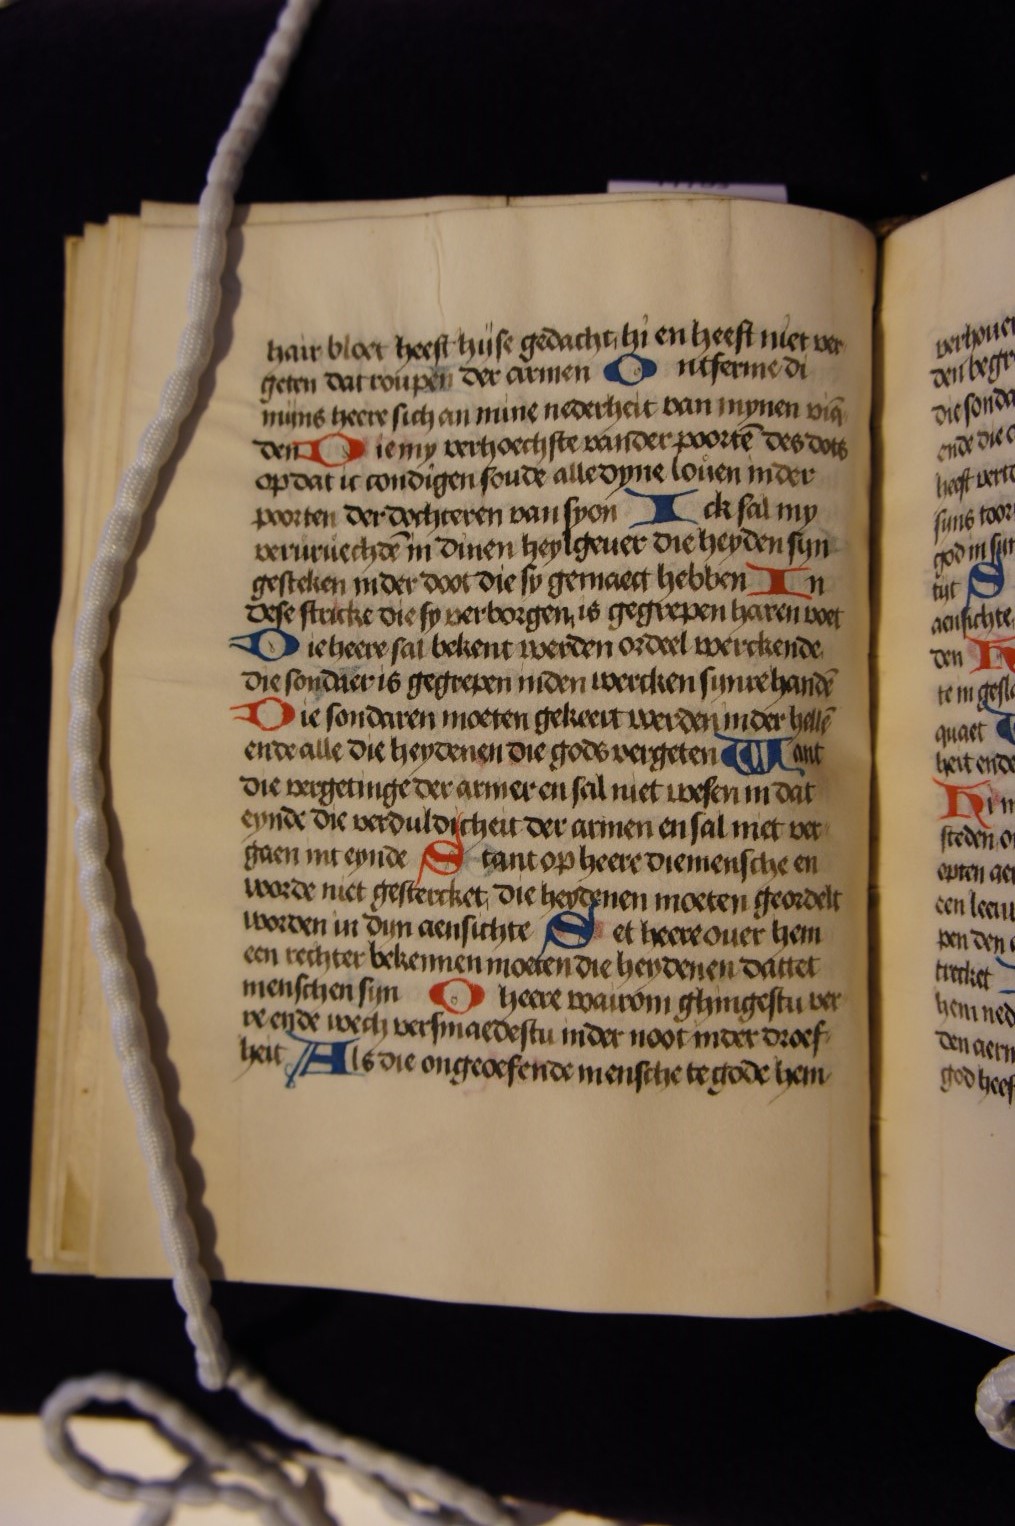 hair bloet heeft hijse gedacht, hi en heeft niet ver
geten dat roupen der armen O ntferme di
mijns heere sich an mine nederheit van mynen viā
den Die my verhoechste vander poortē des dots
op dat ic condigen soude alle dyne louen inder
poorten der dochteren van syon Ick sal my
veruruechdē in dinen heylgeuer die heyden sijn
gesteken inder doot die sy gemaect hebben In
dese stricke die sy verborgen, is gegrepen haren voet
Die heere sal bekent werden ordeel werckende
die sondaer is gegrepen inden wercken sijnre handē
Die sondaren moeten gekeert werden inder hellē
ende alle die heydenen die gods vergeten Want
die vergetinge der armer en sal niet wesen in dat
eynde die verduldicheit der armen en sal niet ver
gaen int eynde Stant op heere die mensche en
worde niet gestercket, die heydenen moeten geordelt
worden in dijn aensichte Set heere ouer hem
een rechter bekennen moeten die heydenen dattet
menschen sijn O heere wairom ghingestu ver
re ende wech versmaedestu inder noot inder droef
heit Als die ongeoefende mensche tegode hem
verhouer
den begr
die sonda
ende die
heeft vert
sijns toor
god in sijn
tijt S
aensichte
den
te in gesl
quaet
heit ende
Hi in
steden
opten aer
een leeu
pen den
trecket
hem ned
den aerm
god heef